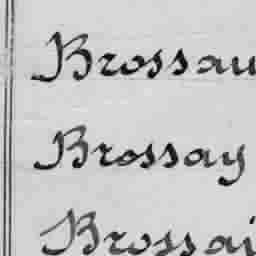 Brossau
Brossay
Brossai